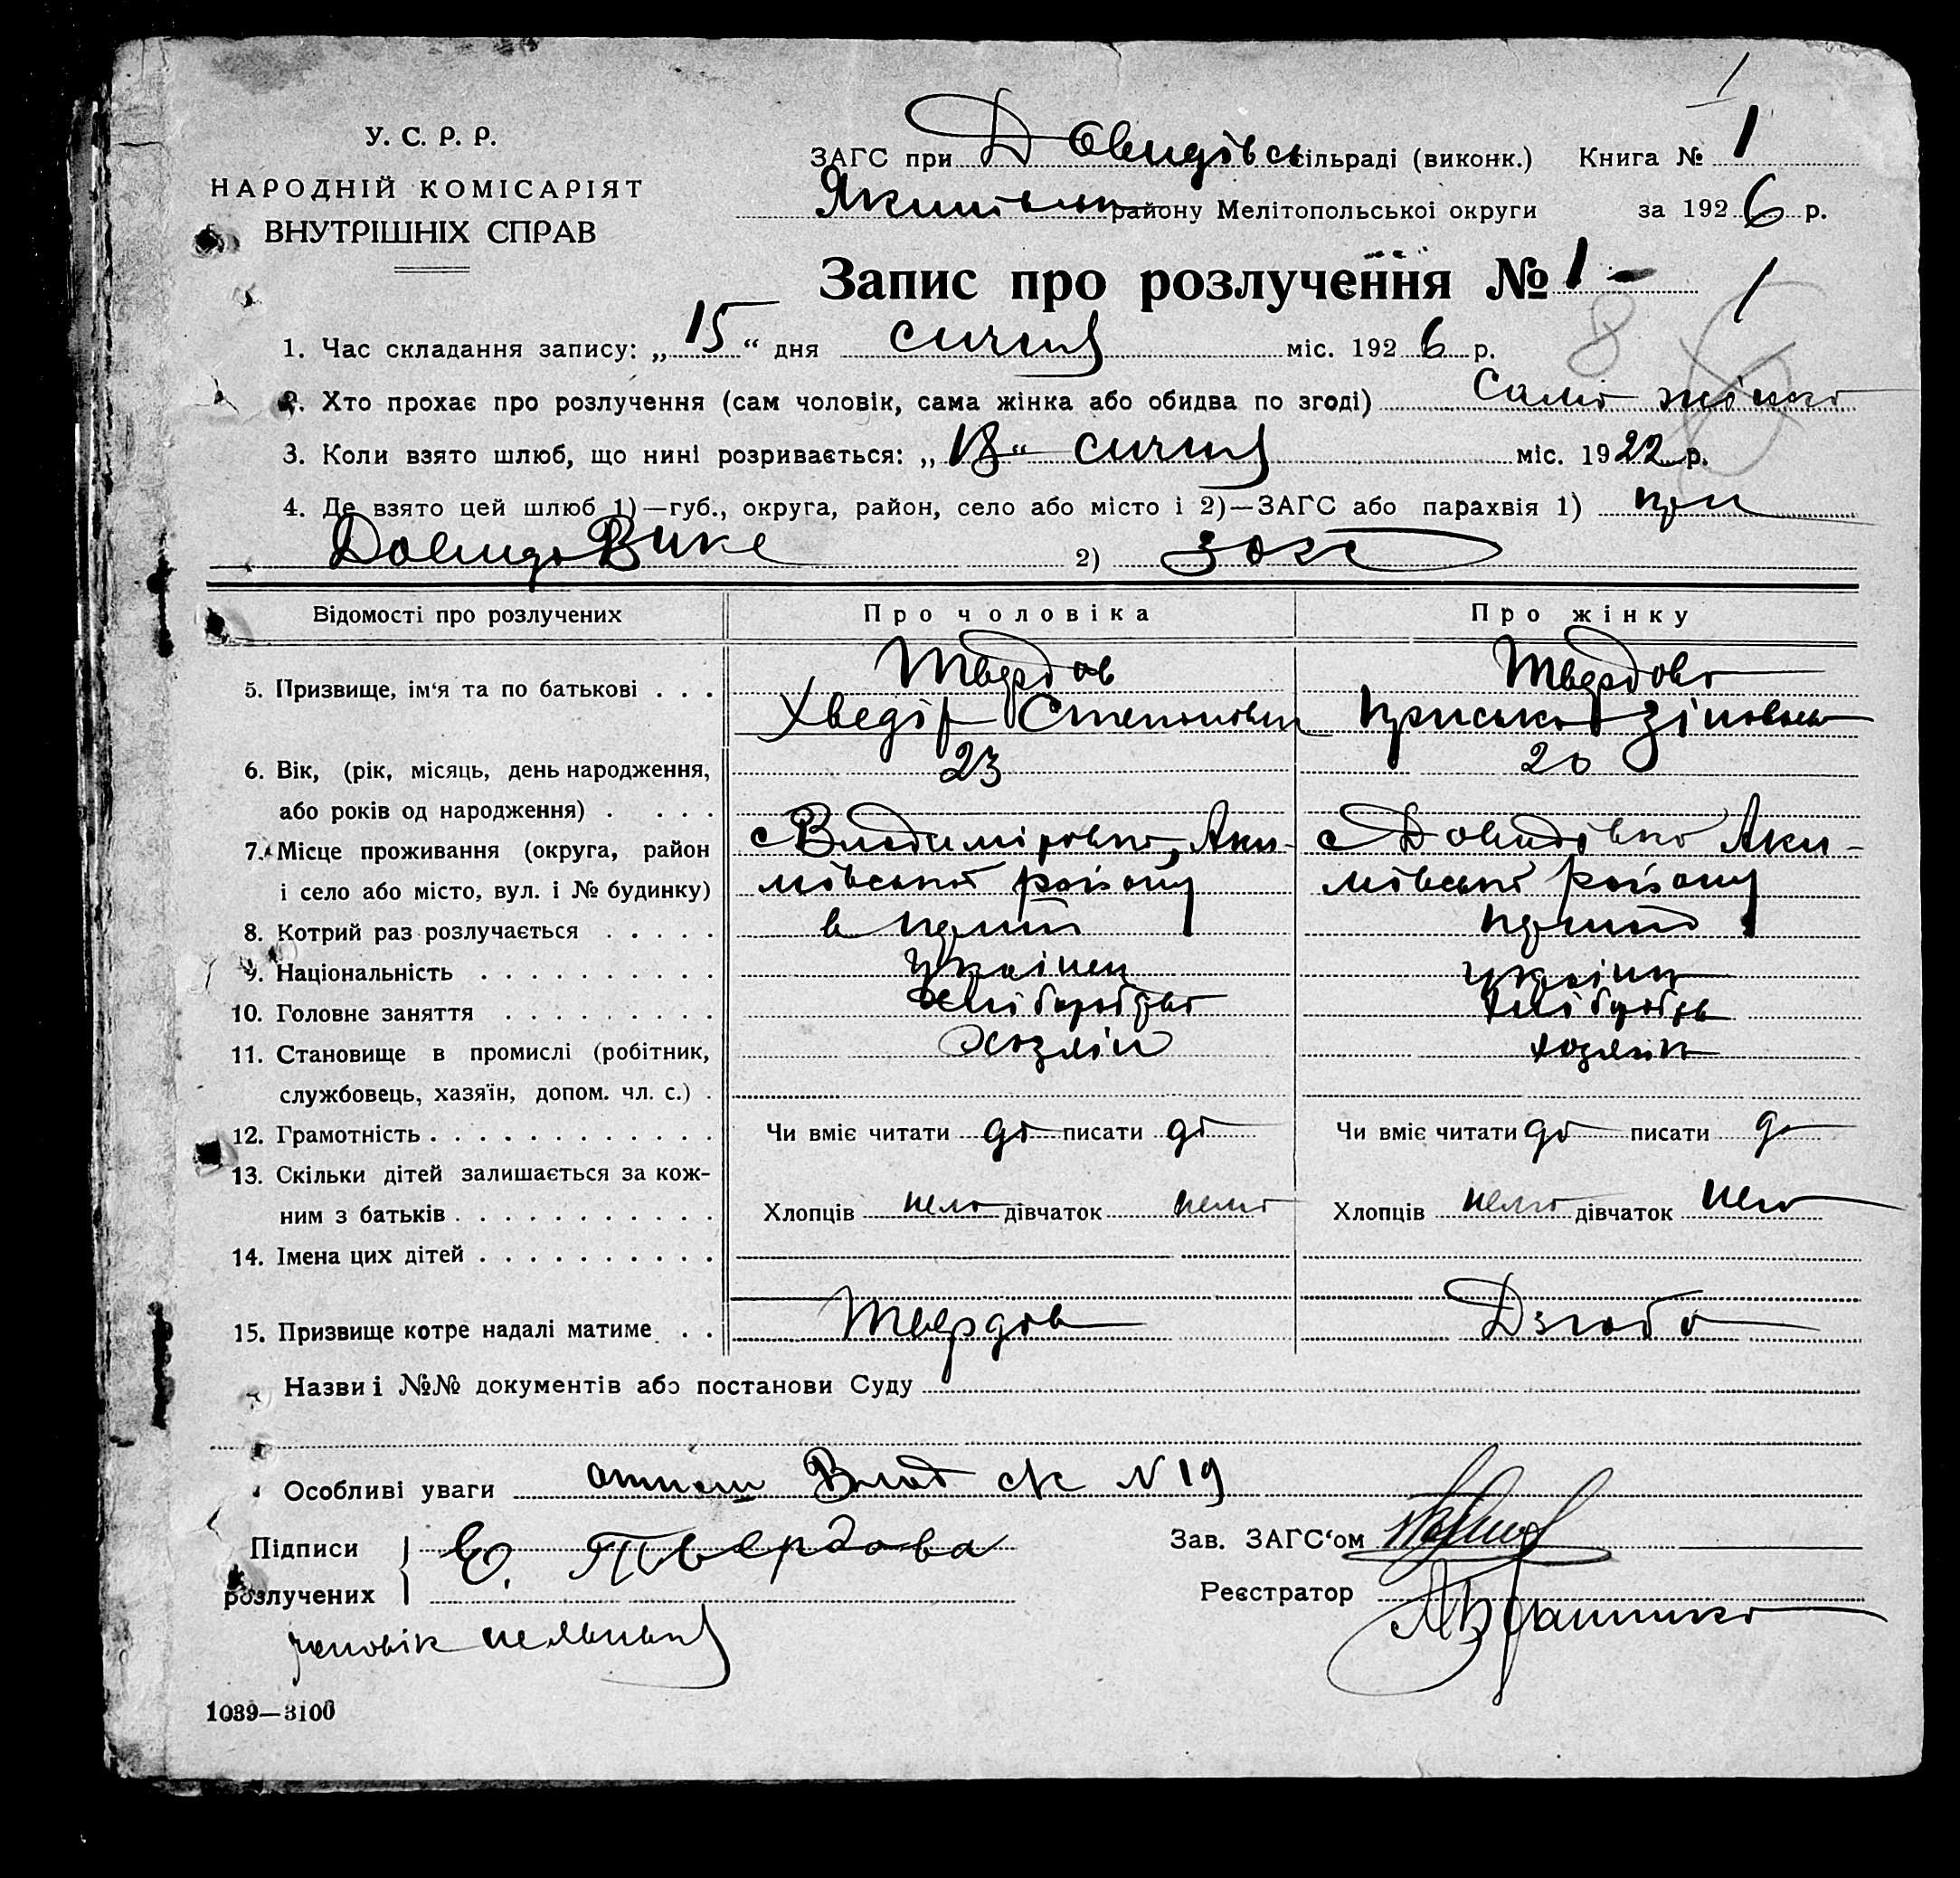 1
У. С. Р. Р.
НАРОДНІЙ КОМІСАРІЯТ
ВНУТРІШНІХ СПРАВ
ЗАГС при Давидівск сільраді (виконк.) Книга № 1
Якимівск району Мелітопольської округи за 1926 р.
Запис про розлучення № 1 - 1
8
1. Час складання запису: „15“ дня січня міс. 1926 р.
2. Хто прохає про розлучення (сам чоловік, сама жінка або обидва по згоді) Сама жінка
3. Коли взято шлюб, що нині розривається: „ “ січня міс. 1922 р.
4. Де взято цей шлюб 1)—губ., округа, район, село або місто і 2)—ЗАГС або парахвія 1) при
2) загс
Відомості про розлучених Про чоловіка Про жінку
5. Призвище, ім'я та по батькові . . . Твердов Твердова
Хведір Степанович Приська Зіновьев
6. Вік, (рік, місяць, день народження, 23 20
або років од народження) . . . .
7. Місце проживання (округа, район с Владиміровка, Аки- с Давидівка Аки-
і село або місто, вул. і № будинку) мівської району мівської району
8. Котрий раз розлучається . . . . . в перший перший
9. Національність . . . . . . . . . . українец українка
10. Головне заняття . . . . . . . . . хліборобство хлібороб
11. Становище в промислі (робітник, хозяїн хозяїка
службовець, хазяїн, допом. чл. с.) .
12. Грамотність . . . . . . . . . . . . Чи вміє читати да писати да Чи вміє читати да писати да
13. Скільки дітей залишається за кож-
ним з батьків . . . . . . . . . . . Хлопців нема дівчаток нема Хлопців нема дівчаток нема
14. Імена цих дітей . . . . . . . . . .
15. Призвище котре надалі матиме . . Твердов Дзюба
Назви і №№ документів або постанови Суду
Особливі уваги Влад № 19
Підписи Е. Твердова Зав. ЗАГС‘ом
розлучених Реєстратор
чоловік
1039—3100